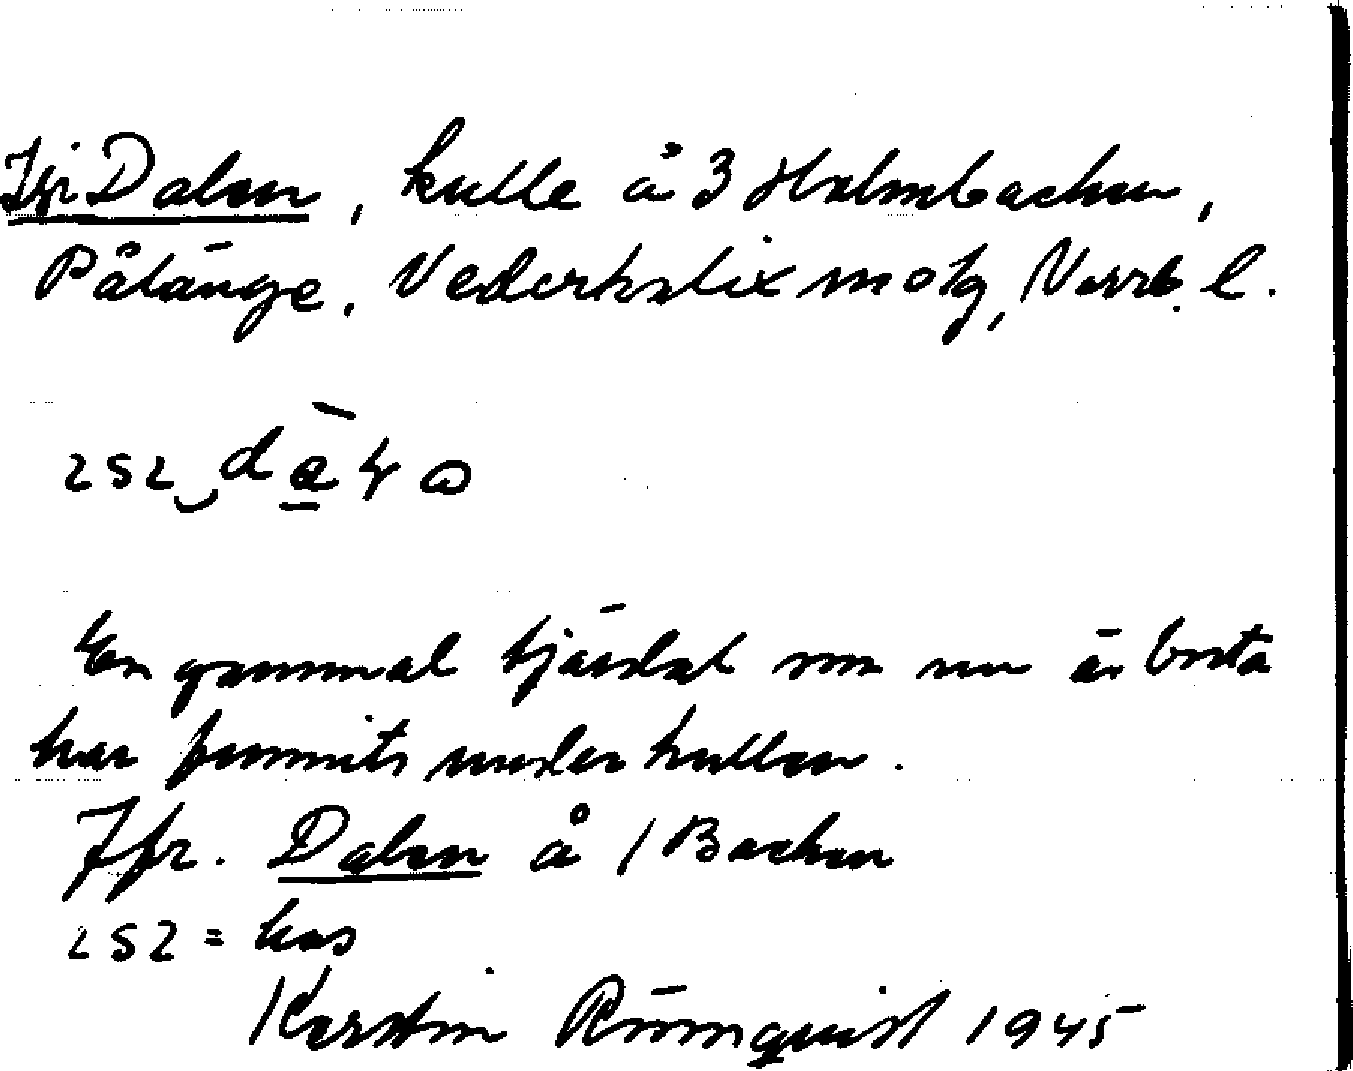 Isi Dalen, kulle å 3 Holmbacken,
Pålänge, Nederkalix motg, Norrb. l.
ısı‿da̠ɫɷ
En gammal tjärdal som nu är borta
har funnits under kullen.
Jfr. Dalen å 1 Backen
ısı = hos
Kerstin Römquist 1945